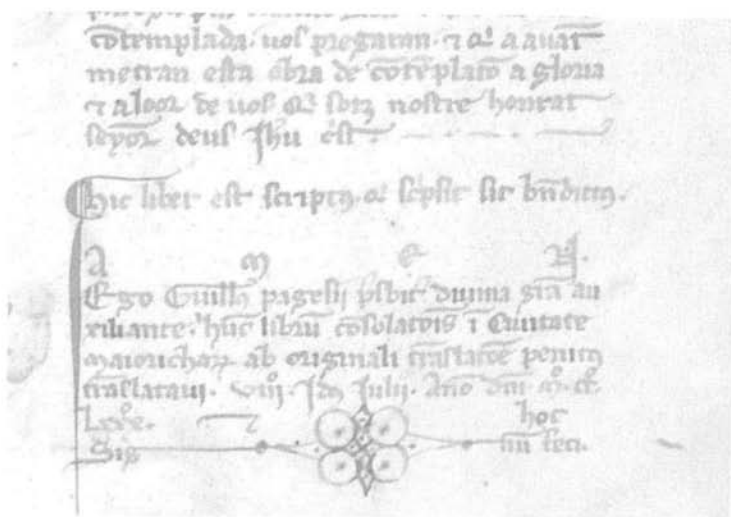 contemplada. uos pregaran. ⁊ q̃ a auāt
metran esta obra de cōtēplatō a gloria
⁊ a loor de uos q̃ sotz nostre honrat
seyor deus Jhu xst.
hic liber est scriptꝰ. q̃ scpsit sit bn̄dictꝰ.
A M E N.
Ego Guillꝰ pagesii p̄sbit̄ diuina grā au
xiliante. hūc librū cōsolatōis ī Ciuitate
maioricharꝝ ab originali trāslatōe penitꝰ
trāslataui. viijº. Idꝰ Julii. Año dñi mº. ccº.
Lxxxº. hoc
Sig num feci.